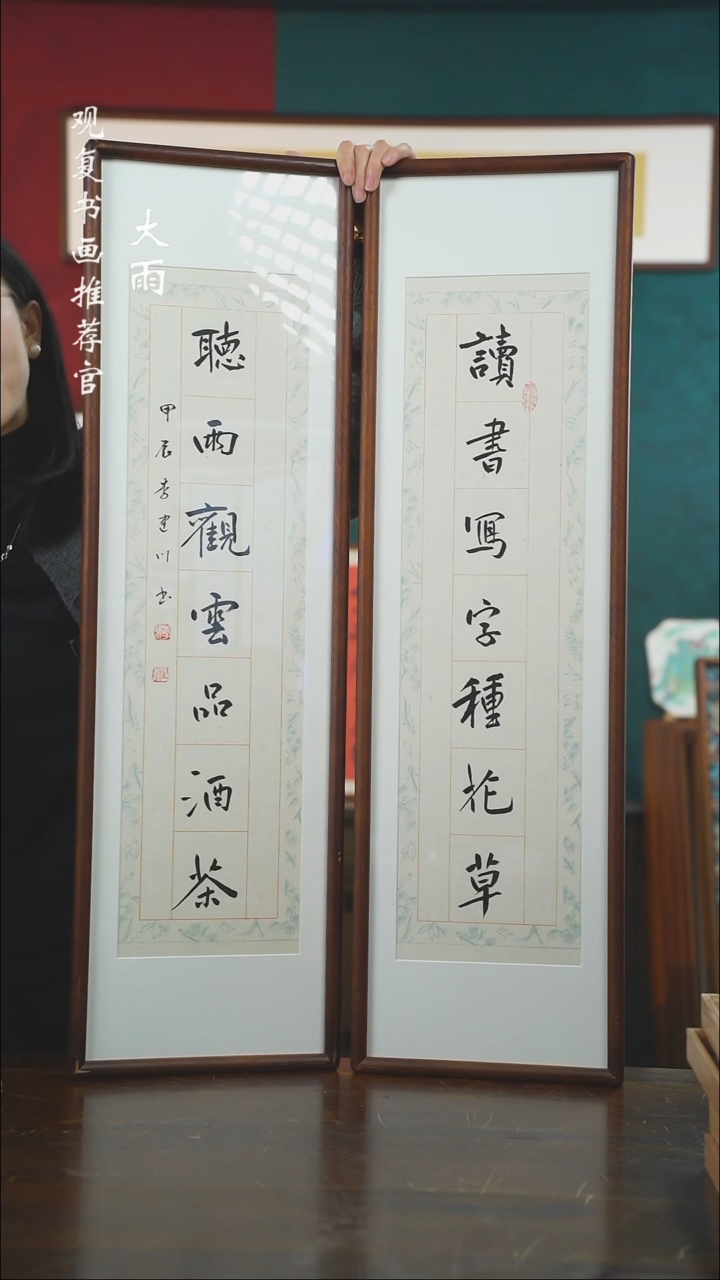 观复书画推荐官
大雨
讀書写字種花草
聽雨觀雲品酒茶
甲辰李建川书